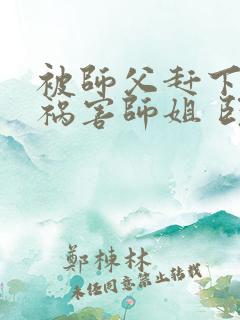 被師父赶下
祸害師姐
鄭棟林
未任同意禁止转载